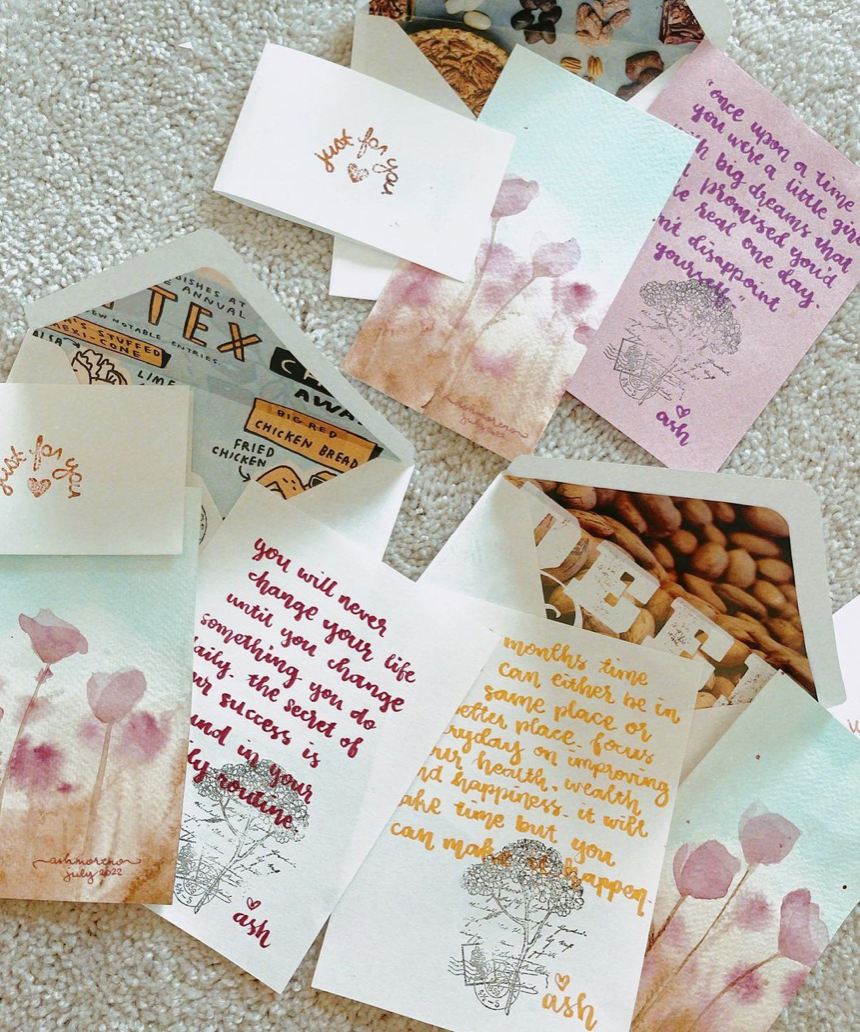 just for you
"once upon a time
you were a little girl
big dreams that
promised you'd
real one day.
disappoint
yourself."
ash
ashmoreno
july 2022
ANNUAL
FEW NOTABLE ENTRIES.
TEX
STUFFED
MEXI-CONE
LIME
AWAY
BIG RED
CHICKEN BREAD
FRIED
CHICKEN
just for you
you will never
change your life
until you change
something you do
daily. the secret of
success is
in your
routine.
ash
ashmoreno
july 2022
months time
can either be in
same place or
place. focus
on improving
health, wealth
happiness. it will
time but you
can make it happen.
ash